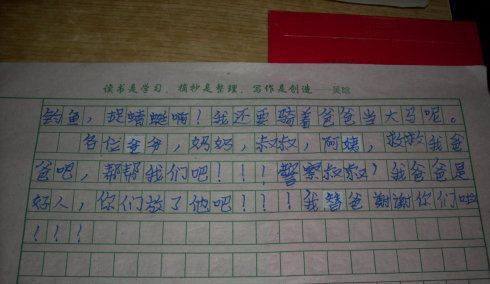 读书是学习,摘抄是整理,写作是创造——吴晗
钓鱼,捉蜻蜓啊!我还要骑着爸爸当大马呢。
各位爷爷,奶奶,叔叔,阿姨,救救我爸
爸吧,帮帮我们吧!!!警察叔叔,我爸爸是
好人,你们放了他吧!!!我替爸谢谢你们啦
!!!